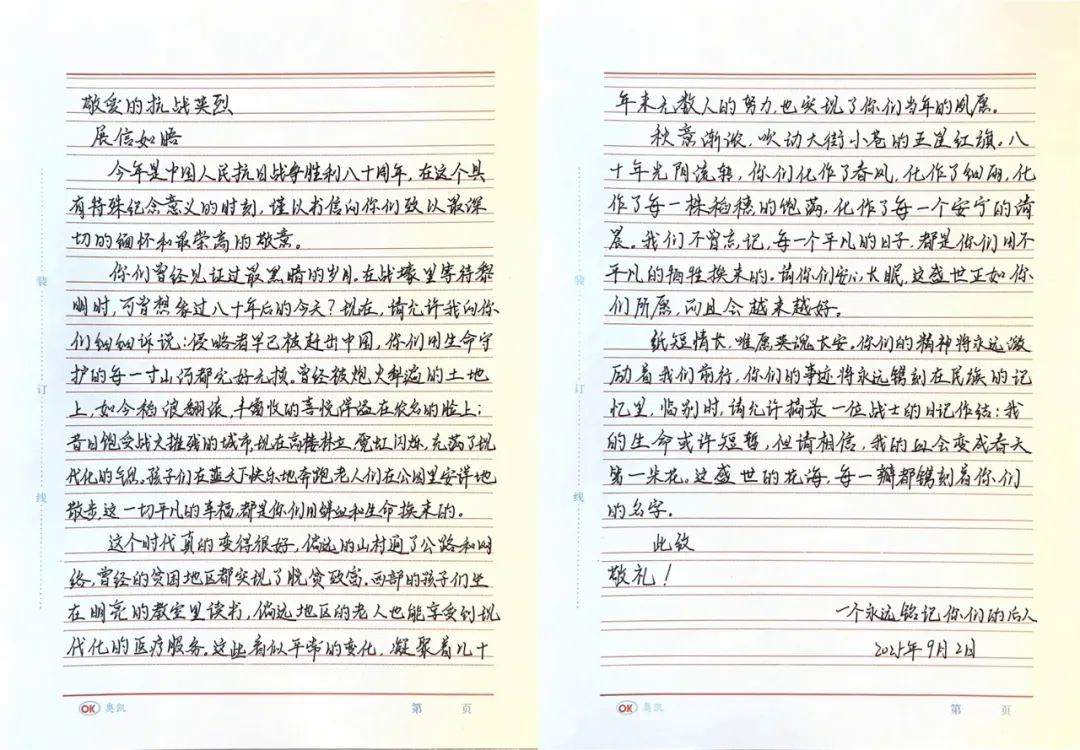 敬爱的抗战英烈
展信如晤
今年是中国人民抗日战争胜利八十周年,在这个具
有特殊纪念意义的时刻,谨以书信向你们致以最深
切的缅怀和最崇高的敬意。
你们曾经见证过最黑暗的岁月。在战壕里等待黎
明时,可曾想象过八十年后的今天?现在,请允许我向你
们细细诉说:侵略者早已被赶出中国,你们用生命守
护的每一寸山河都完好无损。曾经被炮火犁遍的土地
上,如今稻浪翻滚,丰收的喜悦洋溢在农名的脸上;
昔日饱受战火摧残的城市,现在高楼林立,霓虹闪烁,充满了现
代化的气息。孩子们在蓝天下快乐地奔跑,老人们在公园里安详地
散步,这一切平凡的幸福,都是你们用鲜血和生命换来的。
这个时代真的变得很好,偏远的山村通了公路和网
络,曾经的贫困地区都实现了脱贫致富。西部的孩子们坐
在明亮的教室里读书,偏远地区的老人也能享受到现
代化的医疗服务。这些看似平常的变化,凝聚着几十
年来无数人的努力,也实现了你们当年的夙愿。
秋意渐浓,吹动大街小巷的五星红旗。八
十年光阴流转,你们化作了春风,化作了细雨,化
作了每一株稻穗的饱满,化作了每一个安宁的清
晨。我们不曾忘记,每一个平凡的日子,都是你们用不
平凡的牺牲换来的。请你们安心长眠,这盛世正如你
们所愿,而且会越来越好。
纸短情长,唯愿英魂长安。你们的精神将永远激
励着我们前行,你们的事迹将永远镌刻在民族的记
忆里,临别时,请允许摘录一位战士的日记作结:我
的生命或许短暂,但请相信,我的血会变成春天
第一朵花。这盛世的花海,每一瓣都镌刻着你们
的名字。
此致
敬礼!
一个永远铭记你们的后人
2025年9月2日
装
订
线
OK 奥凯
第 页
装
订
线
OK 奥凯
第 页